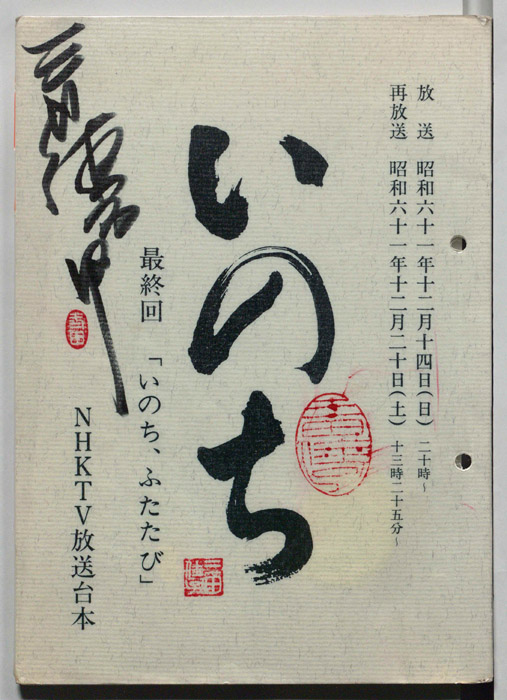 放送 昭和六十一年十二月十四日(日) 二十時~
再放送 昭和六十一年十二月二十日(土) 十三時二十五分~
いのち
最終回 「いのち、ふたたび」
NHKTV放送台本